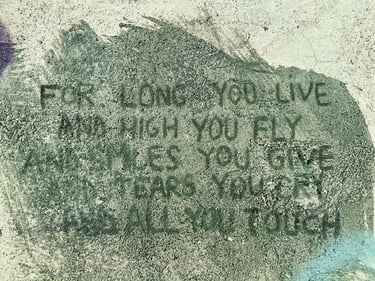 FOR LONG YOU LIVE
AND HIGH YOU FLY
AND SMILES YOU GIVE
TEARS YOU CRY
AND ALL YOU TOUCH